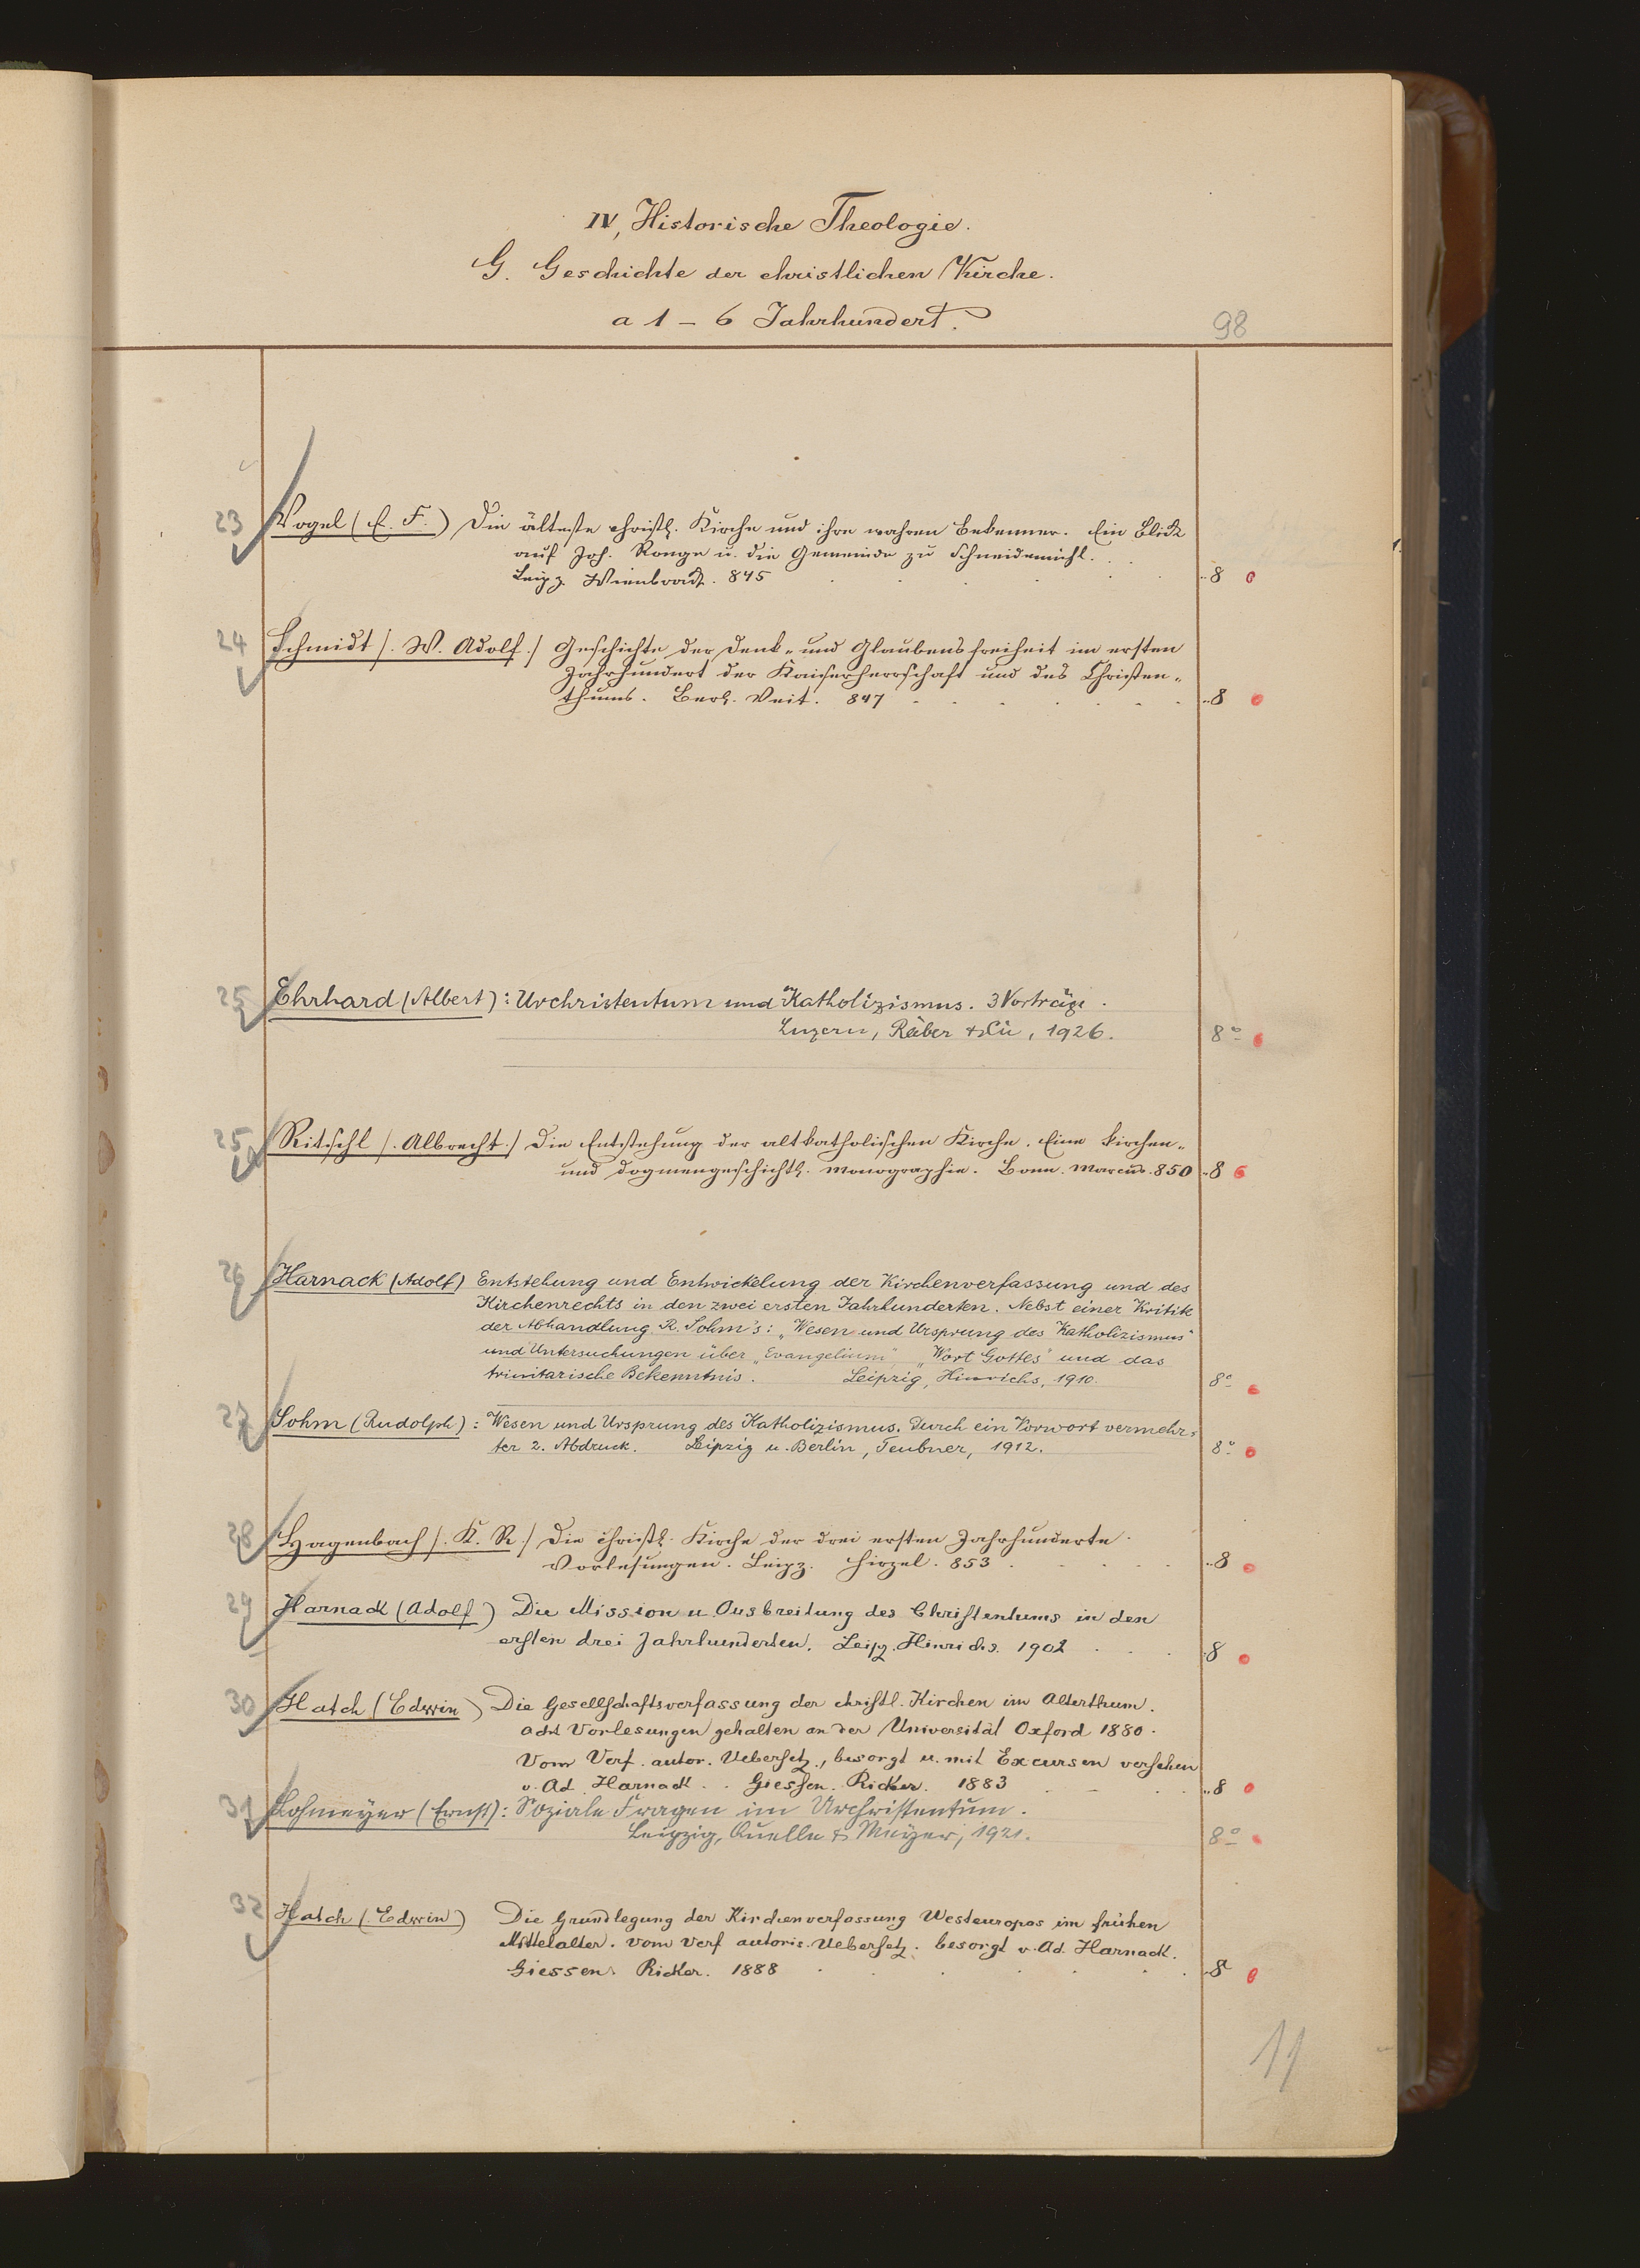 IV, Historische Theologie.
G. Geschichte der christlichen Kirche.
a 1 – 6 Jahrhundert.
98
23 Vogel (E. F.) Die älteste christl. Kirche und ihre wahren Bekenner. Ein Blick
auf Joh. Ronge u. die Gemeinde zu Schneidemühl.
Leipz. Wienbrack. 845 8
24 Schmidt /. W. Adolf./ Geschichte der Denk- und Glaubensfreiheit im ersten
Jahrhundert der Kaiserherrschaft und des Christen-
thums. Berl. Veit. 847 8
25 Ehrhard (Albert): Urchristentum und Katholizismus. 3 Vorträge.
Luzern, Räber & Cie, 1926. 8°
25a Ritschl /. Albrecht./ Die Entstehung der altkatholischen Kirche. Eine kirchen-
und dogmengeschichtl. Monographie. Bonn. Marcus. 850 8
26 Harnack (Adolf) Entstehung und Entwickelung der Kirchenverfassung und des
Kirchenrechts in den zwei ersten Jahrhunderten. Nebst einer Kritik
der Abhandlung R. Sohm's: „Wesen und Ursprung des Katholizismus"
und Untersuchungen über „Evangelium", „Wort Gottes" und das
trinitarische Bekenntnis. Leipzig, Hinrichs, 1910. 8°
27 Sohm (Rudolph): Wesen und Ursprung des Katholizismus. Durch ein Vorwort vermehr-
ter 2. Abdruck. Leipzig u. Berlin, Teubner, 1912. 8°
28 Hagenbach /. K. R./ Die christl. Kirche der drei ersten Jahrhunderte.
Vorlesungen. Leipz. Hirzel. 853 8
29 Harnack (Adolf) Die Mission u. Ausbreitung des Christentums in den
ersten drei Jahrhunderten. Leipz. Hinrichs. 1902 8
30 Hatch (Edwin) Die Gesellschaftsverfassung der christl. Kirchen im Alterthum.
acht Vorlesungen gehalten an der Universität Oxford 1880.
Vom Verf. autor. Uebersetz., besorgt u. mit Excursen versehen
v. Ad. Harnack. Giessen. Ricker. 1883 8
31 Lohmeyer (Ernst): Soziale Fragen im Urchristentum.
Leipzig, Quelle & Meyer, 1921. 8°
32 Hatch (Edwin) Die Grundlegung der Kirchenverfassung Westeuropas im frühen
Mittelalter. vom Verf autoris. Uebersetz. besorgt v. Ad. Harnack.
Giessen. Ricker. 1888 8
11